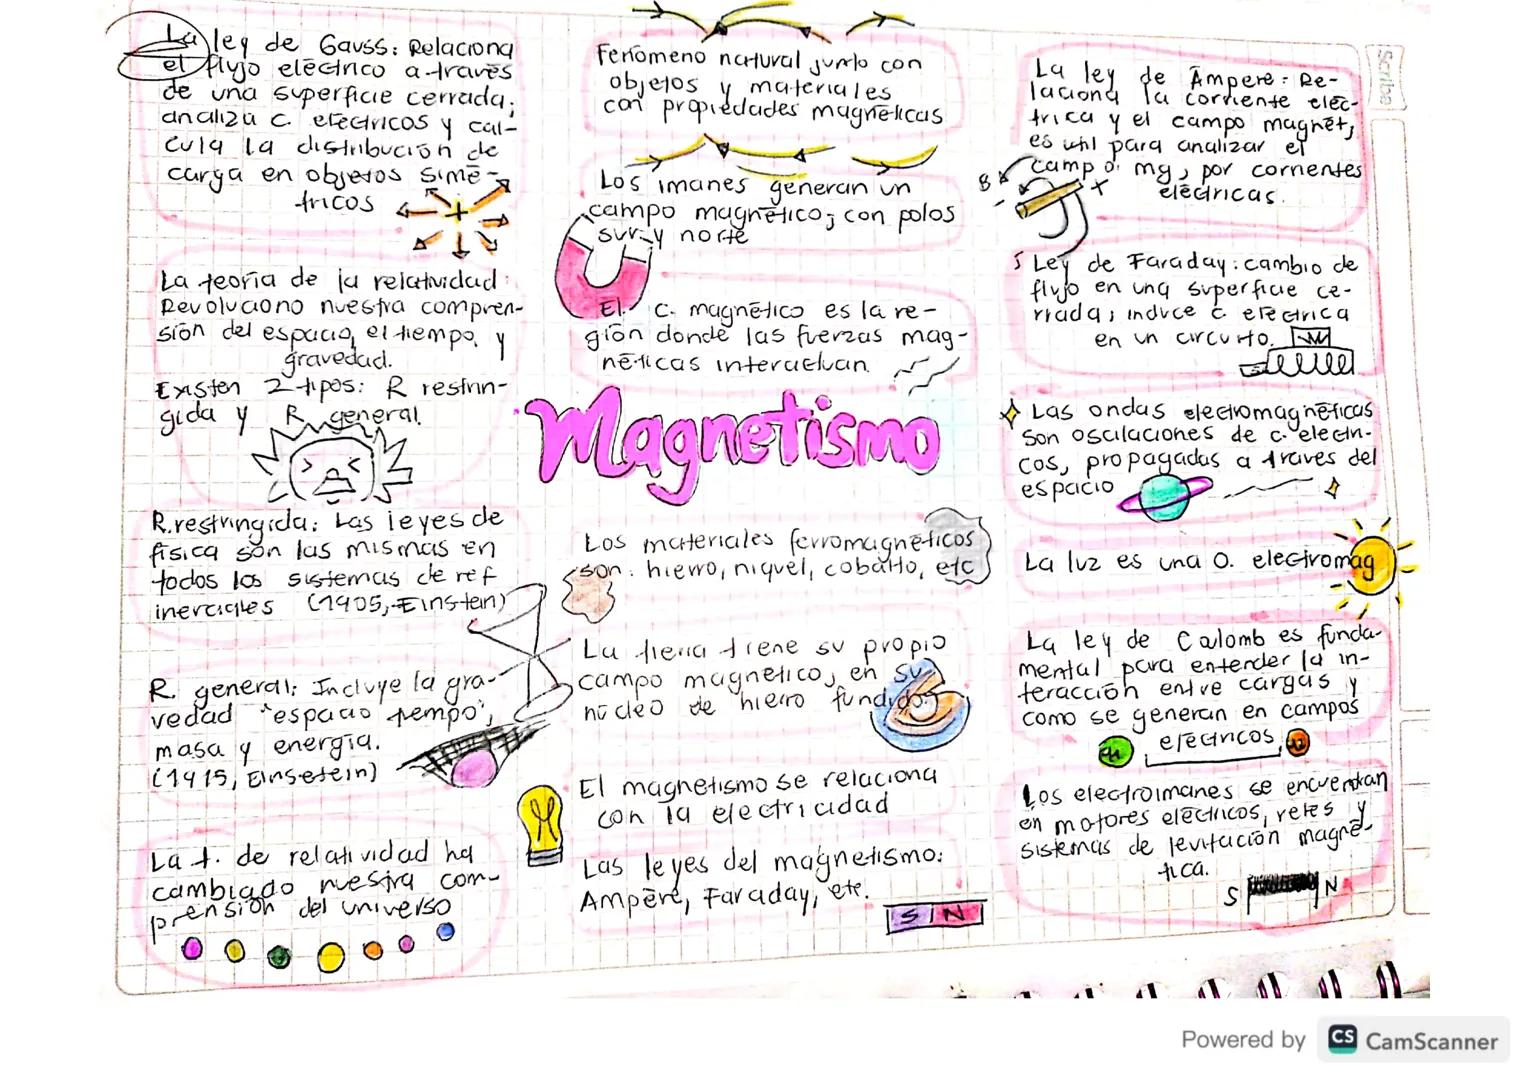 La ley de Gauss: Relaciona
el flujo eléctrico a través
de una superficie cerrada;
analiza c. eléctricos y cal-
cula la distribución de
carga en objetos simé-
tricos
+
La teoría de la relatividad:
Revoluciono nuestra compren-
sión del espacio, el tiempo y
gravedad.
Existen 2 tipos: R restrin-
gida y R general.
R. restringida: Las leyes de
física son las mismas en
todos los sistemas de ref
inerciales (1905, Einstein)
R. general: Incluye la gra-
vedad "espacio tempo",
masa y energía.
(1915, Einsetein)
La t. de relatividad ha
cambiado nuestra com-
prensión del universo
Fenómeno natural junto con
objetos y materiales
con propiedades magnéticas
Los imanes generan un
campo magnético; con polos
sur y norte
El c. magnético es la re-
gión donde las fuerzas mag-
néticas interactuan.
Magnetismo
Los materiales ferromagnéticos
son: hierro, niquel, cobalto, etc
La tierra tiene su propio
campo magnético, en su
núcleo de hierro fundido.
El magnetismo se relaciona
con la electricidad
Las leyes del magnetismo:
Ampère, Faraday, etc.
S N
La ley de Ampere: Re-
laciona la corriente eléc-
trica y el campo magnét,
es util para analizar el
campo mg, por corrientes
eléctricas.
B
Ley de Faraday: cambio de
flujo en una superficie ce-
rrada; induce c. electrica
en un circuito.
Las ondas electromagnéticas
son oscilaciones de c. electri-
cos, propagadas a traves del
espacio
La luz es una O. electromag
La ley de Calomb es funda-
mental para entender la in-
teracción entre cargas y
como se generan en campos
eléctricos
Los electroimanes se encuentran
en motores eléctricos, reles y
sistemas de levitación magné-
tica.
S N
Scribe
Powered by CS CamScanner